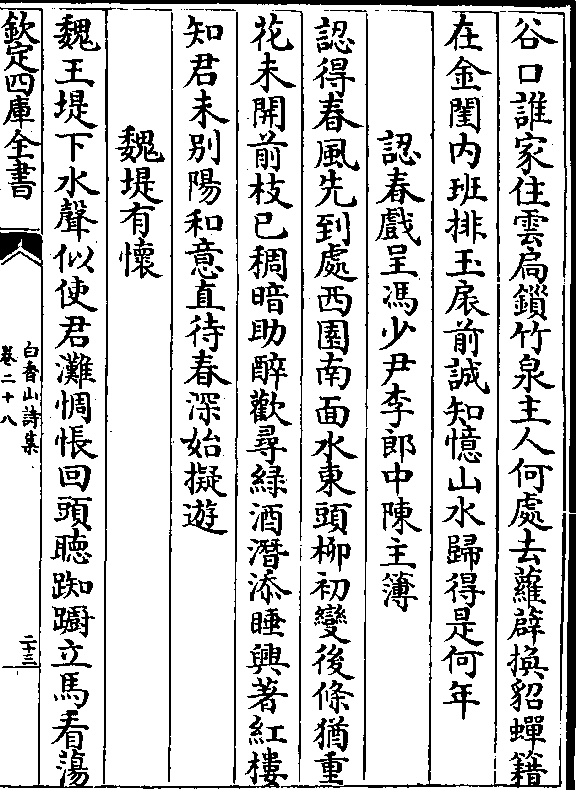 谷口誰家住雲扃鎖竹泉主人何處去蘿薜換貂蟬籍
在金閨内班排玉扆前誠知憶山水歸得是何年
認春戲呈馮少尹李郎中陳主簿
認得春風先到處西園南面水東頭柳初變後條猶重
花未開前枝已稠暗助醉歡尋緑酒潛添睡興著紅樓
知君未别陽和意直待春深始擬遊
魏堤有懷
魏王堤下水聲似使君灘惆悵回頭聴踟躕立馬看蕩
欽定四庫全書
白香山詩集
卷二十八
二十三